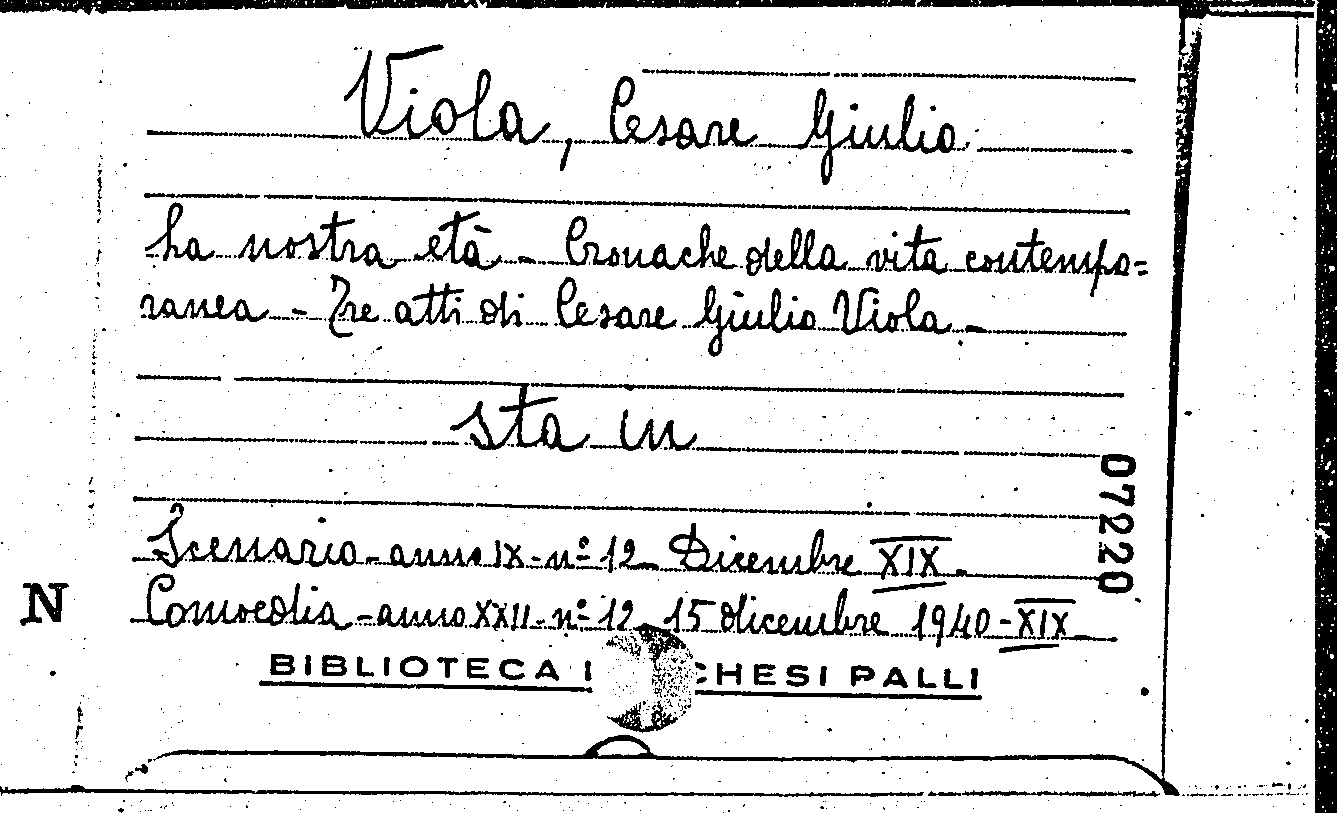 Viola, Cesare Giulio
La nostra età - Cronache della vita contempo=
ranea - Tre atti di Cesare Giulio Viola -
sta in
Scenario - anno IX - nº 12 - Dicembre XIX -
Comoedia - anno XXII - nº 12 - 15 dicembre 1940 - XIX -
N
07220
BIBLIOTECA CHESI PALLI